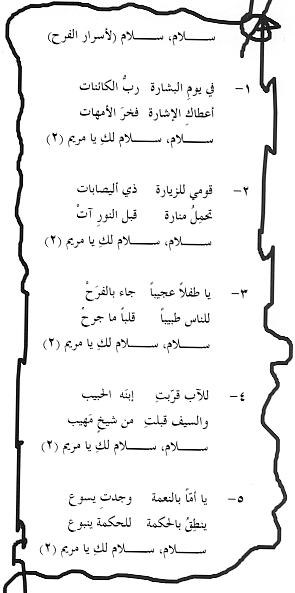 ســـــلام، ســـــلام (لأسرار الفرح)
١- في يومِ البشارة ربُّ الكائنات
أعطاكِ الإشارة فخرَ الأمهات
ســـــلام، ســـــلام لكِ يا مريم (٢)
٢- قومي للزيارة ذي أليصابات
تحمِلُ منارة قبل النورِ آتْ
ســـــلام، ســـــلام لكِ يا مريم (٢)
٣- يا طفلاً عجيباً جاء بالفرَحْ
للناس طبيباً قلباً ما جرحْ
ســـــلام، ســـــلام لكِ يا مريم (٢)
٤- للآب قرّبتِ إبنَه الحبيب
والسيف قبلتِ من شيخٍ مَهيب
ســـــلام، ســـــلام لكِ يا مريم (٢)
٥- يا أمّاً بالنعمة وجدتِ يسوع
ينطِقُ بالحكمة للحكمة ينبوع
ســـــلام، ســـــلام لكِ يا مريم (٢)